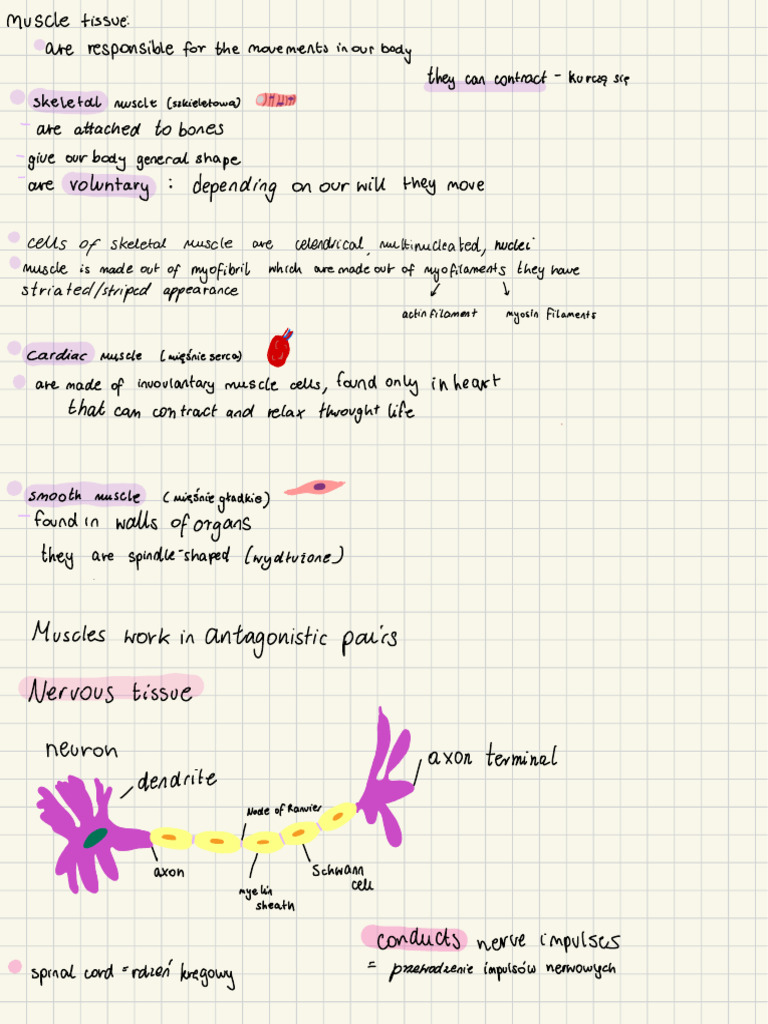 Muscle tissue:
are responsible for the movements in our body
they can contract - kurczą się
skeletal muscle (szkieletowa)
are attached to bones
give our body general shape
are voluntary : depending on our will they move
cells of skeletal muscle are celendrical, multinucleated, nuclei
muscle is made out of myofibril which are made out of myofilaments they have
striated/striped appearance
actin filament myosin filaments
cardiac muscle (mięśnie serca)
are made of invovlantary muscle cells, found only in heart
that can contract and relax throught life
smooth muscle (mięśnie gładkie)
found in walls of organs
they are spindle-shaped (wydłużone)
Muscles work in antagonistic pairs
Nervous tissue
neuron
axon terminal
dendrite
Node of Ranvier
axon
Schwann
cell
myelin
sheath
conducts nerve impulses
spinal cord = rdzeń kręgowy
= przewodzenie impulsów nerwowych